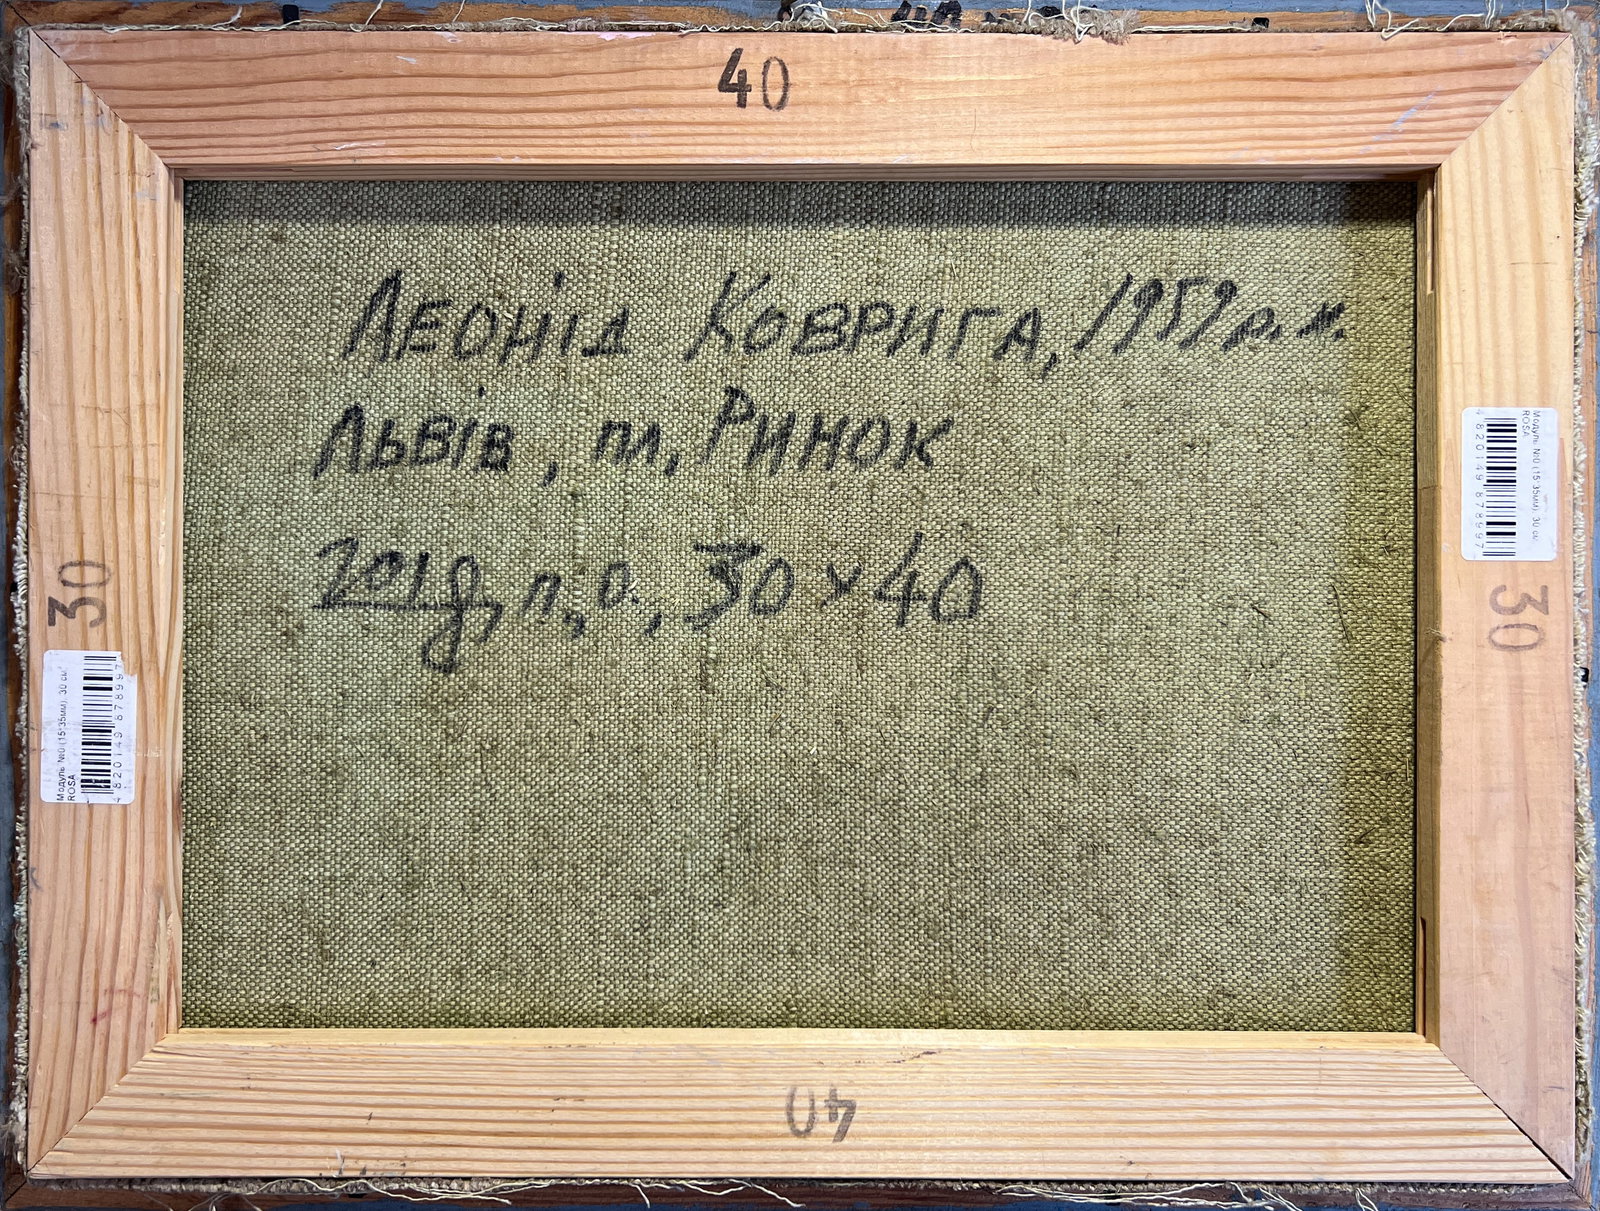 40
Леонід Коврига, 1959 р.н.
Львів, пл. Ринок
2018, п., о., 30 х 40
30
30
Модуль №0 (15*35мм), 30 см
ROSA
4820149878997
Модуль №0 (15*35мм), 30 см
ROSA
4820149878997
40